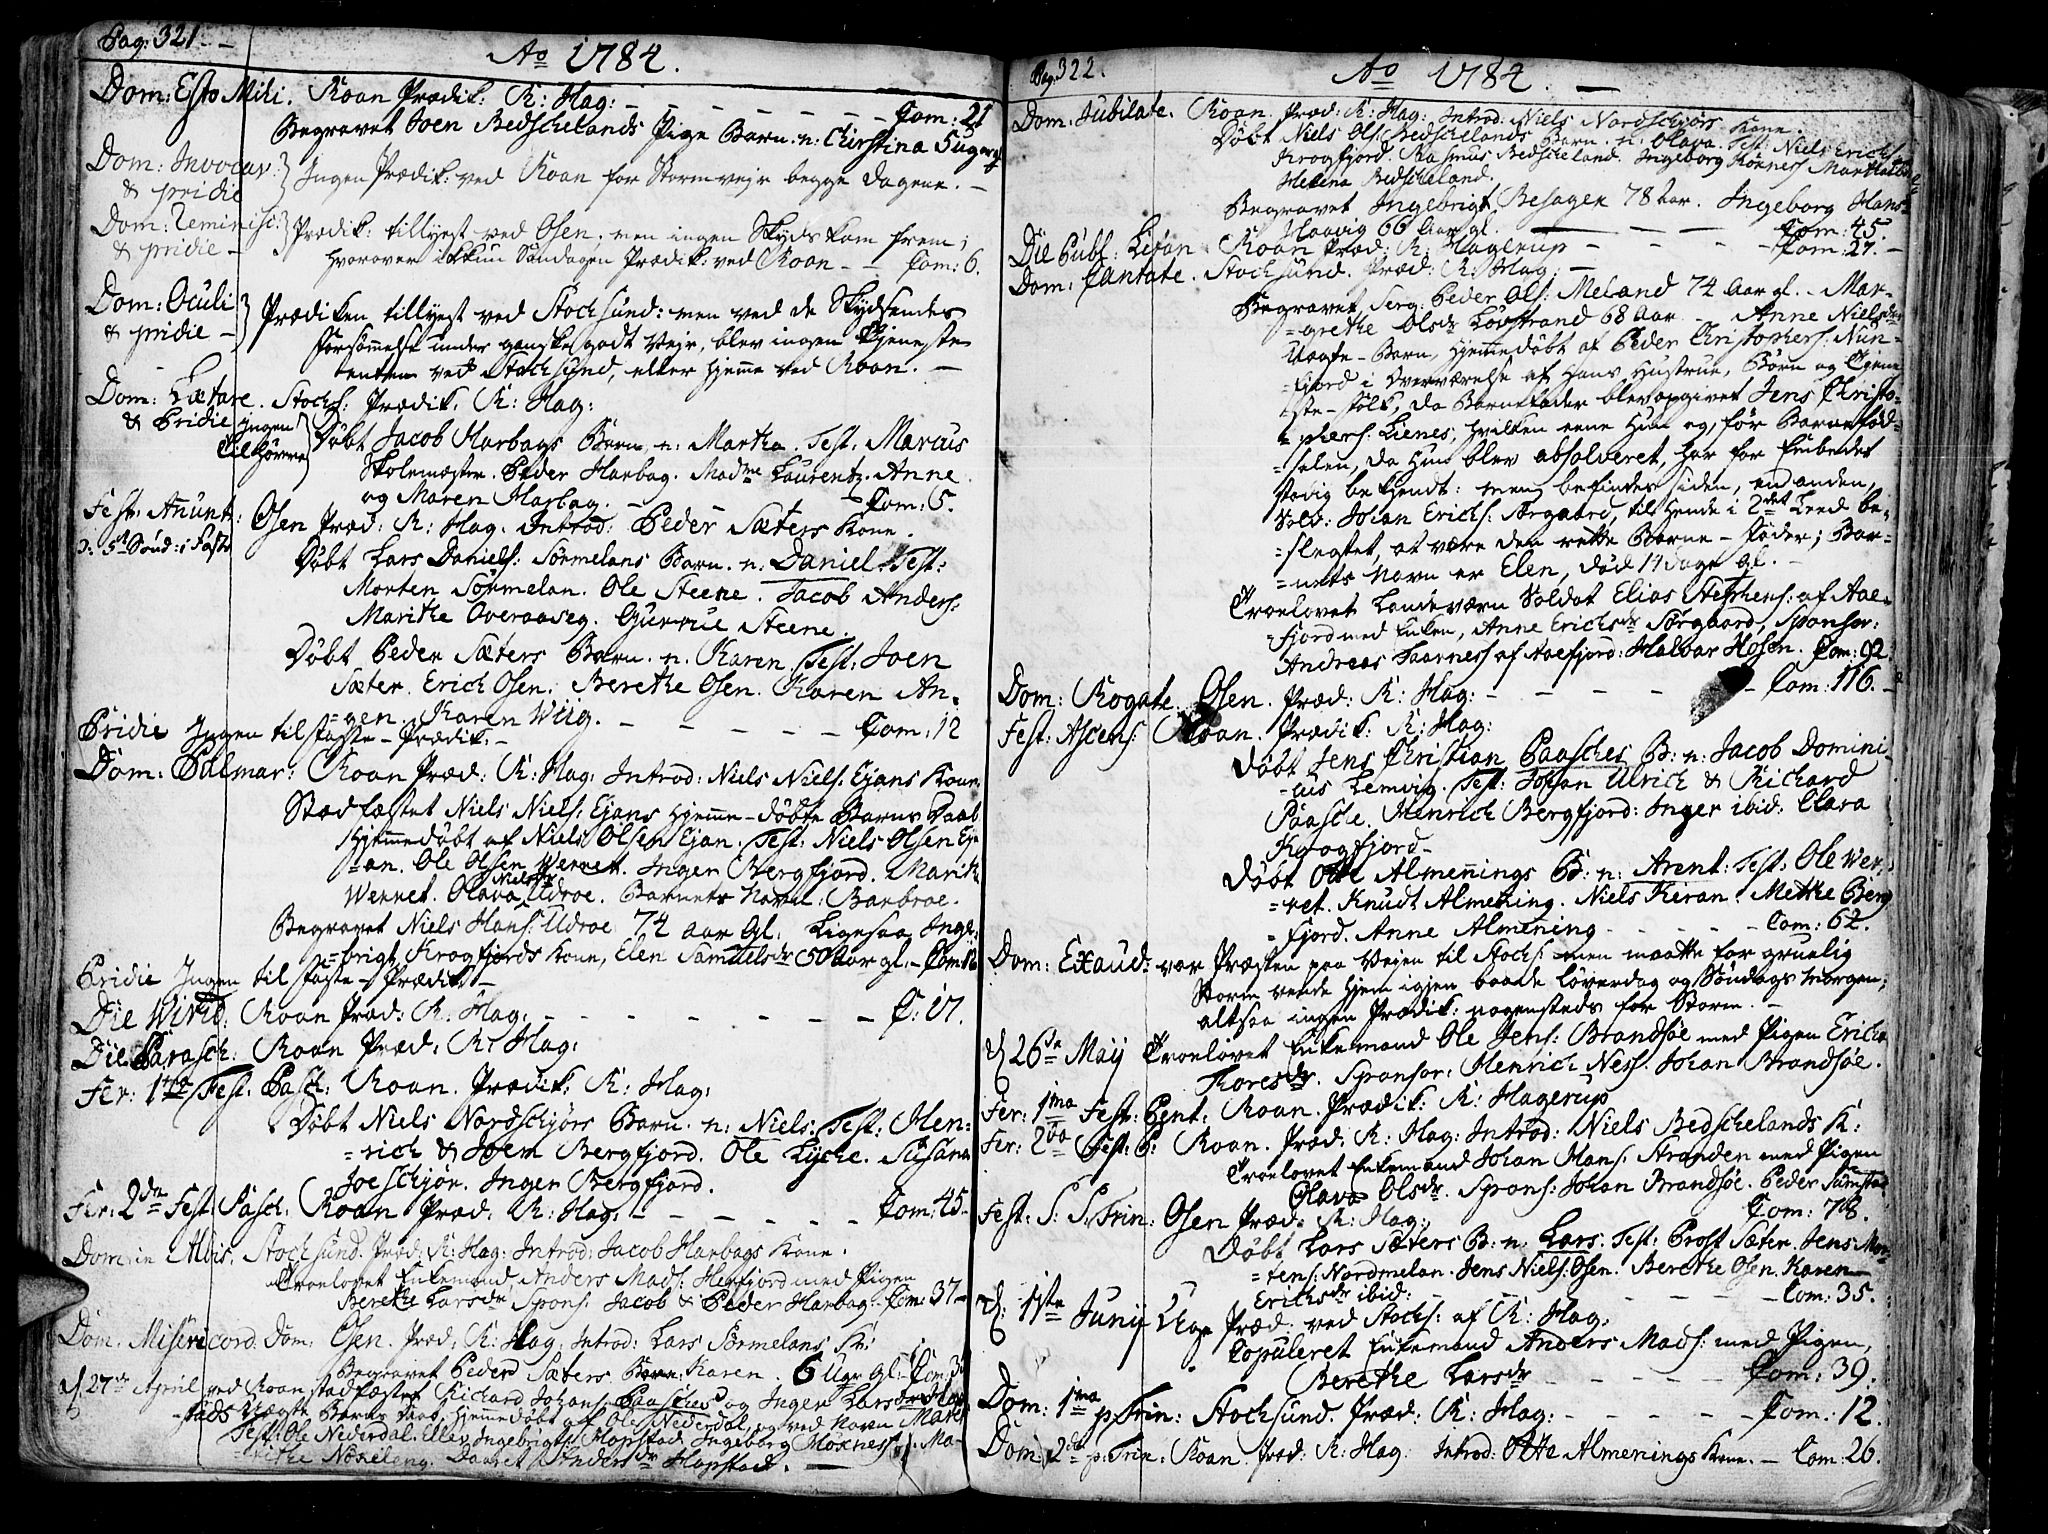 Pag: 321.
Ao 1784.
Dom: Esto Mihi. Roan Prædik: R: Hag: — Com: 21
Begravet Joen Bedschelands Pige Barn. n: Christina 5 Uger gl.
Dom: Invocav: & pridie } Ingen Prædik: ved Roan for Stormvejr begge dagene.
Dom: Reminisc: & pridie } Prædik: tillyst ved Osen, men ingen Skyds kom frem;
hvorover ikkun Søndagen Prædik: ved Roan — Com: 6.
Dom: Oculi & pridie } Prædiken tillyst ved Stocksund: men ved de Skydsendes
Forsømmelse under ganske godt Vejr, blev ingen Tjeneste
enten ved Stocksund, eller hjemme ved Roan.
Dom: Lætare. Stocks: Prædik: R: Hag:
& Pridie ingen Tilhørere } Døbt Jacob Harbags Barn. n: Martha. Test: Marcus
Skolemæster. Peder Harbag. Madme Laurentz. Anne
og Maren Harbag. — Com: 5.
Fest: Anunt: Osen Præd: R: Hag. Introd: Peder Sæters Kone.
ɔ: 5te Sønd: i Faste
Døbt Lars Daniels: Sørmelans Barn. n. Daniel. Test:
Morten Sørmelan. Ole Steene. Jacob Anders:
Marithe Overaaseg. Gurrue Steene.
Døbt Peder Sæters Barn. n. Karen. Test: Joen
Sæter. Erich Osen. Berethe Osen. Karen An-
=gen. Karen Wiig. — Com: 12
Pridie Ingen til Faste-Prædik:
Dom: Palmar: Roan Præd: R: Hag: Introd: Niels Niels: Ejans Kone
Stædfæstet Niels Niels: Ejans hjemme-døbte Barns Daab
hjemmedøbt af Niels Olsen Ejan. Test: Niels Olsen Ej-
=an. Ole Olsen Wennet. Inger Bergfjord. Marith
Wennet. Olava Nielsdr Udroe. Barnets Navn: Barbroe.
Begravet Niels Hans: Udroe 74 aar gl. Ligesaa Inge-
=brigt Krogfjords Kone, Elen Samuelsdr 50 aar gl. — Com: 16
Pridie Ingen til Faste-Prædik:
Die Wirid: Roan Præd: R: Hag: — C: 17.
Die Parasch: Roan Præd: R: Hag:
Fer: 1ma Fest: Pasch: Roan. Prædik: R: Hag:
Døbt Niels Nordschjørs Barn. n: Niels: Test: Hen-
=rich & Joen Bergfjord. Ole Lyche. Susana
Joeschjør. Inger Bergfjord.
Fer: 2da Fest: Pasch: Roan Præd: R: Hag: — Com: 45
Dom: in Albis. Stocksund. Præd: R: Hag: Introd: Jacob Harbags Kone.
Troelovet Enkemand Anders Mads: Hepfjord med Pigen
Berethe Larsdr Spons: Jacob & Peder Harbag: Com: 37
Dom. Misericord. Dom: Osen. Præd: R: Hag: Introd: Lars Sørmelans K:
Begravet Peder Sæters Barn: Karen. 6 Uger gl:
27de April ved Roan stadfæstet Richard Johans: Paasches og Inger Larsdr Hop-
stads Uægte Barns Daab, hjemmedøbt af Ole Nederdal, og ved Navn Maren
Test: Ole Nederdal. Ellev Ingebrigts: Hopstad. Ingeborg Hoxness. Ma-
rithe Noxeleng. Daaret Andersdr Hopstad.
Pag: 322.
Ao 1784.
Dom: Jubilate. Roan. Præd: R: Hag: Introd: Niels Nordschjørs Kone.
Døbt Niels Ols: Bedschelands Barn. n: Olava. Test: Niels Erichs:
Krogfjord. Rasmus Bedscheland. Ingeborg Kønness. Martha &
Helena Bedscheland.
Begravet Ingebrigt Besagen 78 aar. Ingeborg Hans-
Haavig 66 aar gl. — Com: 45.
Die Publ: Liton Roan Præd: R: Hagerup — Com: 27.
Dom: Cantate. Stocksund. Præd: R: Hag:
Begravet Serg: Peder Ols: Meland 74 aar gl. Mar-
=grethe Olsdr Løvstrand 68 aar — Anne Nielsdrs
Uægte-Barn, hjemmedøbt af Peder Christophers: Nun-
=fjord i Overværelse af hans Hustrue, Børn og Tjene-
ste-folk, da Barnefader blev opgivet Jens Christo-
=phers: Lienes, hvilken eene hun og, før Barnefød-
=selen, da hun blev absolveret, har for Embedet
stadig bekjendt: men befindes siden, en anden,
Sold: Johan Erichs: Sørgaard, til hende i 2det Leed be-
=slegtet, at være den rette Barne-Fader; Bar-
=nets Navn er Elen, død 14 dage gl.
Troelovet Landeværn Soldat Elias Stephens: af Aae-
Fjord med Enken, Anne Erichsdr Sørgaard, Sponsor:
Andreas Taarness af Aaefjord: Halvar Hosen. Com: 92.
Dom: Rogate. Osen. Præd: R: Hag: — Com: 116.
Fest: Ascens: Roan. Prædik: R: Hag:
Døbt Jens Christian Paasches B: n: Jacob Domini-
=cus Lemvig. Test: Johan Ulrich & Richard
Paasche. Henrich Bergfjord: Inger ibid: Clara
Krogfjord.
Døbt Otte Almenings B: n: Arent: Test: Ole Wen-
=net. Knudt Almening. Niels Kiran. Methe Berg-
=fjord. Anne Almening — Com: 62.
Dom: Exaud: var Præsten paa Vejen til Stocks: men maatte for gruelig
Storm vende hjem igjen baade Løverdag og Søndags Morgen;
altsaa ingen Prædik: nogensteds for Storm.
26de Maij Troelovet Enkemand Ole Jens: Brandsøe med Pigen Ericha
Thoresdr. Sponsor: Henrich Ness. Johan Brandsøe.
Fer: 1ma Fest: Pent: Roan. Prædik: R: Hagerup
Fer: 2da Fest: P: Roan. Præd: R: Hag: Introd: Niels Bedschelands K:
Troelovet Enkemand Johan Hans: Stranden med Pigen
Olava Olsdr. Spons: Johan Brandsøe. Peder Sumstad
Fest: S. S. Trin: Osen Præd: R: Hag: Com: 78.
Døbt Lars Sæters B: n: Lars. Test: Prost Sæter. Jens Mor-
=tens: Nordmelan. Jens Niels: Osen. Berethe Osen. Karen
Erichsdr ibid: — Com: 35.
17de Junij Præd. ved Stocks: af R: Hag:
Copuleret Enkemand Anders Mads: med Pigen,
Berethe Larsdr — Com: 39.
Dom: 1ma p. Trin: Stocksund. Præd: R: Hag: — Com: 12.
Dom: 2da p. Trin: Roan. Præd: R: Hag: Introd: Otte Almenings Kone. — Com: 26.